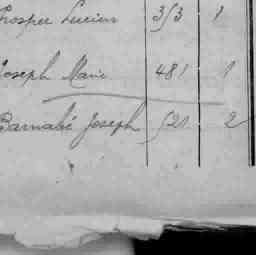 Prosper Lucien 353 1
Joseph Marie 481 1
Barnabé Joseph 521 2